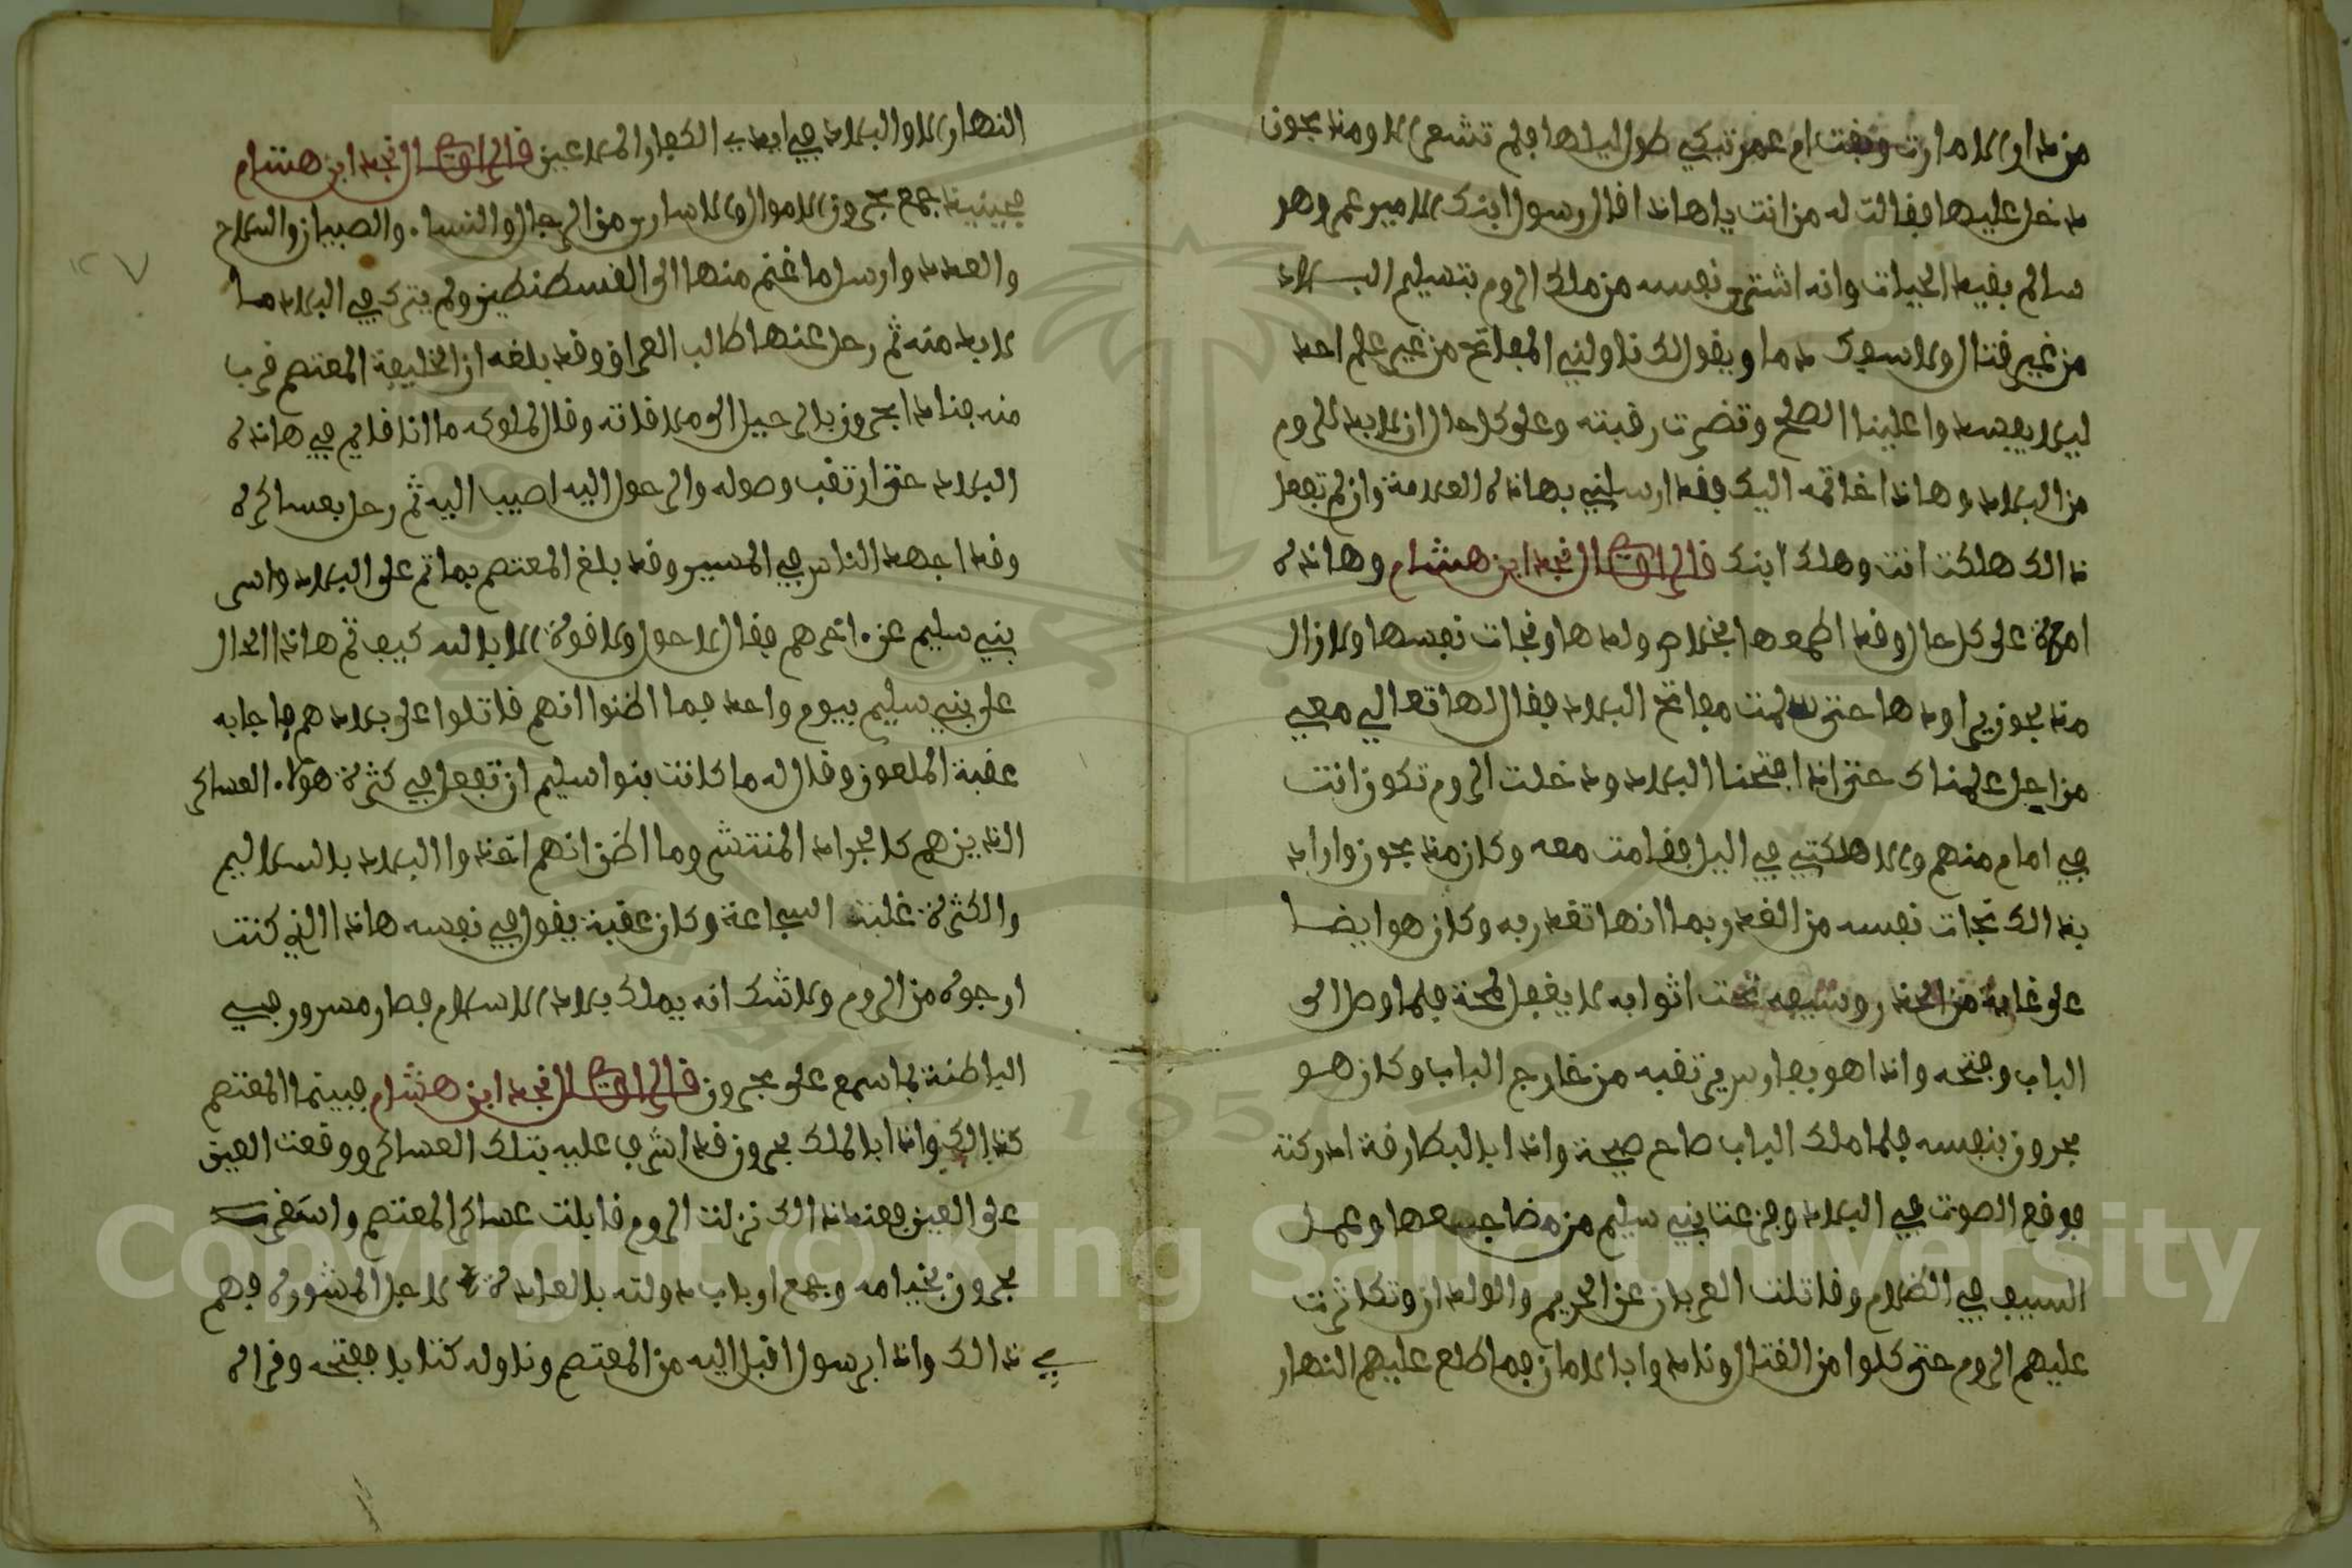 من دار الامارت وبقت ام عمر تبكي طول ليلها فلم تشعر الا ومنه بحرون
دخل عليها فقالت له من انت يا هاذا قال رسول ابنك الامير عمر وهو
سالم بقيد الحيات وانه اشترى نفسه من ملك الروم بتسليم البلاد
من غير قتال ولا سفك دما ويقول لك ناوليني المفاتح من غير علم احد
ليلا يفسدوا علينا الصلح وتضرب رقبته وعلى كل حال ان لابد للروم
من البلاد وهاذا خاتمه اليك فقد ارسلني بهاذه العلامة وان لم تفعل
ذالك هلكت انت وهلك ابنك قال الراوي النجد ابن هشام وهاذه
امرة على كل حال وقد اطمعها بخلاص ولدها ونجات نفسها ولا زال
بحرون يراودها حتى سلمت مفاتح البلاد فقال لها تعالي معي
من اجل علمناك حتى اذا افتحنا البلاد ودخلت الروم تكون انت
في امام منهم ولا هلكتي في اليل فقامت معه وكان بحرون اراد
بذالك نجات نفسه من الغدر ربما انها تغدر به وكان هو ايضا
على غاية من الحذر وسيفه تحت اثوابه لا يغفل لمحة فلما وصل الى
الباب وفتحه واذا هو بفارس يرتقبه من خارج الباب وكان هو
بحرون بنفسه فلما ملك الباب صاح صيحة واذا بالبطارقة ادركته
فوقع الصوت في البلاد وفزعت بني سليم من مضاجعها وعمل
السيف في الظلام وقاتلت العربان عن الحريم والولدان وتكاثرت
عليهم الروم حتى كلوا من القتال ونادوا بالامان فما طلع عليهم النهار
النهار الا والبلاد في ايدي الكفار الملاعين قال الراوي النجد ابن هشام
فحينيذ جمع بحرون الاموال والاسارى من الرجال والنساء والصبيان والسلاح
والعدد وارسل ما غنم منها الى القسطنطين ولم يترك في البلاد ما
لابد منه ثم رحل عنها طالب العراق وقد بلغه ان الخليفة المعتصم قرب
منه فنادا بحرون بالرحيل الى ملاقاته وقال لملوكه ما انا قايم في هاذه
البلاد حتى ارتقب وصوله والرحول اليه اصيب اليه ثم رحل بعساكره
وقد اجهد الناس في المسير وقد بلغ المعتصم بما تم على البلاد واسر
بني سليم عن اخرهم فقال لا حول ولا قوة الا بالله كيف تم هاذا الحال
على بني سليم بيوم واحد فما اظنوا انهم قاتلوا على بلادهم فاجابه
عقبة الملعون وقال له ما كانت بنوا سليم ان تفعل في كثرة هولاء العساكر
الذين هم كالجراد المنتشر وما اظن انهم اخذوا البلاد بالسلاليم
والكثرة غلبت الشجاعة وكان عقبة يقول في نفسه هاذا الذي كنت
ارجوه من الروم ولا شك انه يملك بلاد الاسلام فصار مسرور في
الباطنة لما سمع على بحرون قال الراوي النجد ابن هشام فبينما المعتصم
كذالك واذا بالملك بحرون قد اشرف عليه بتلك العساكر ووقعت العين
على العين فعند ذالك نزلت الروم قابلت عساكر المعتصم واستقر
بحرون بخيامه وجمع ارباب دولته بالعادة لاجل المشوره فهم
في ذالك واذا برسول اقبل اليه من المعتصم وناوله كتابا ففتحه وقراه